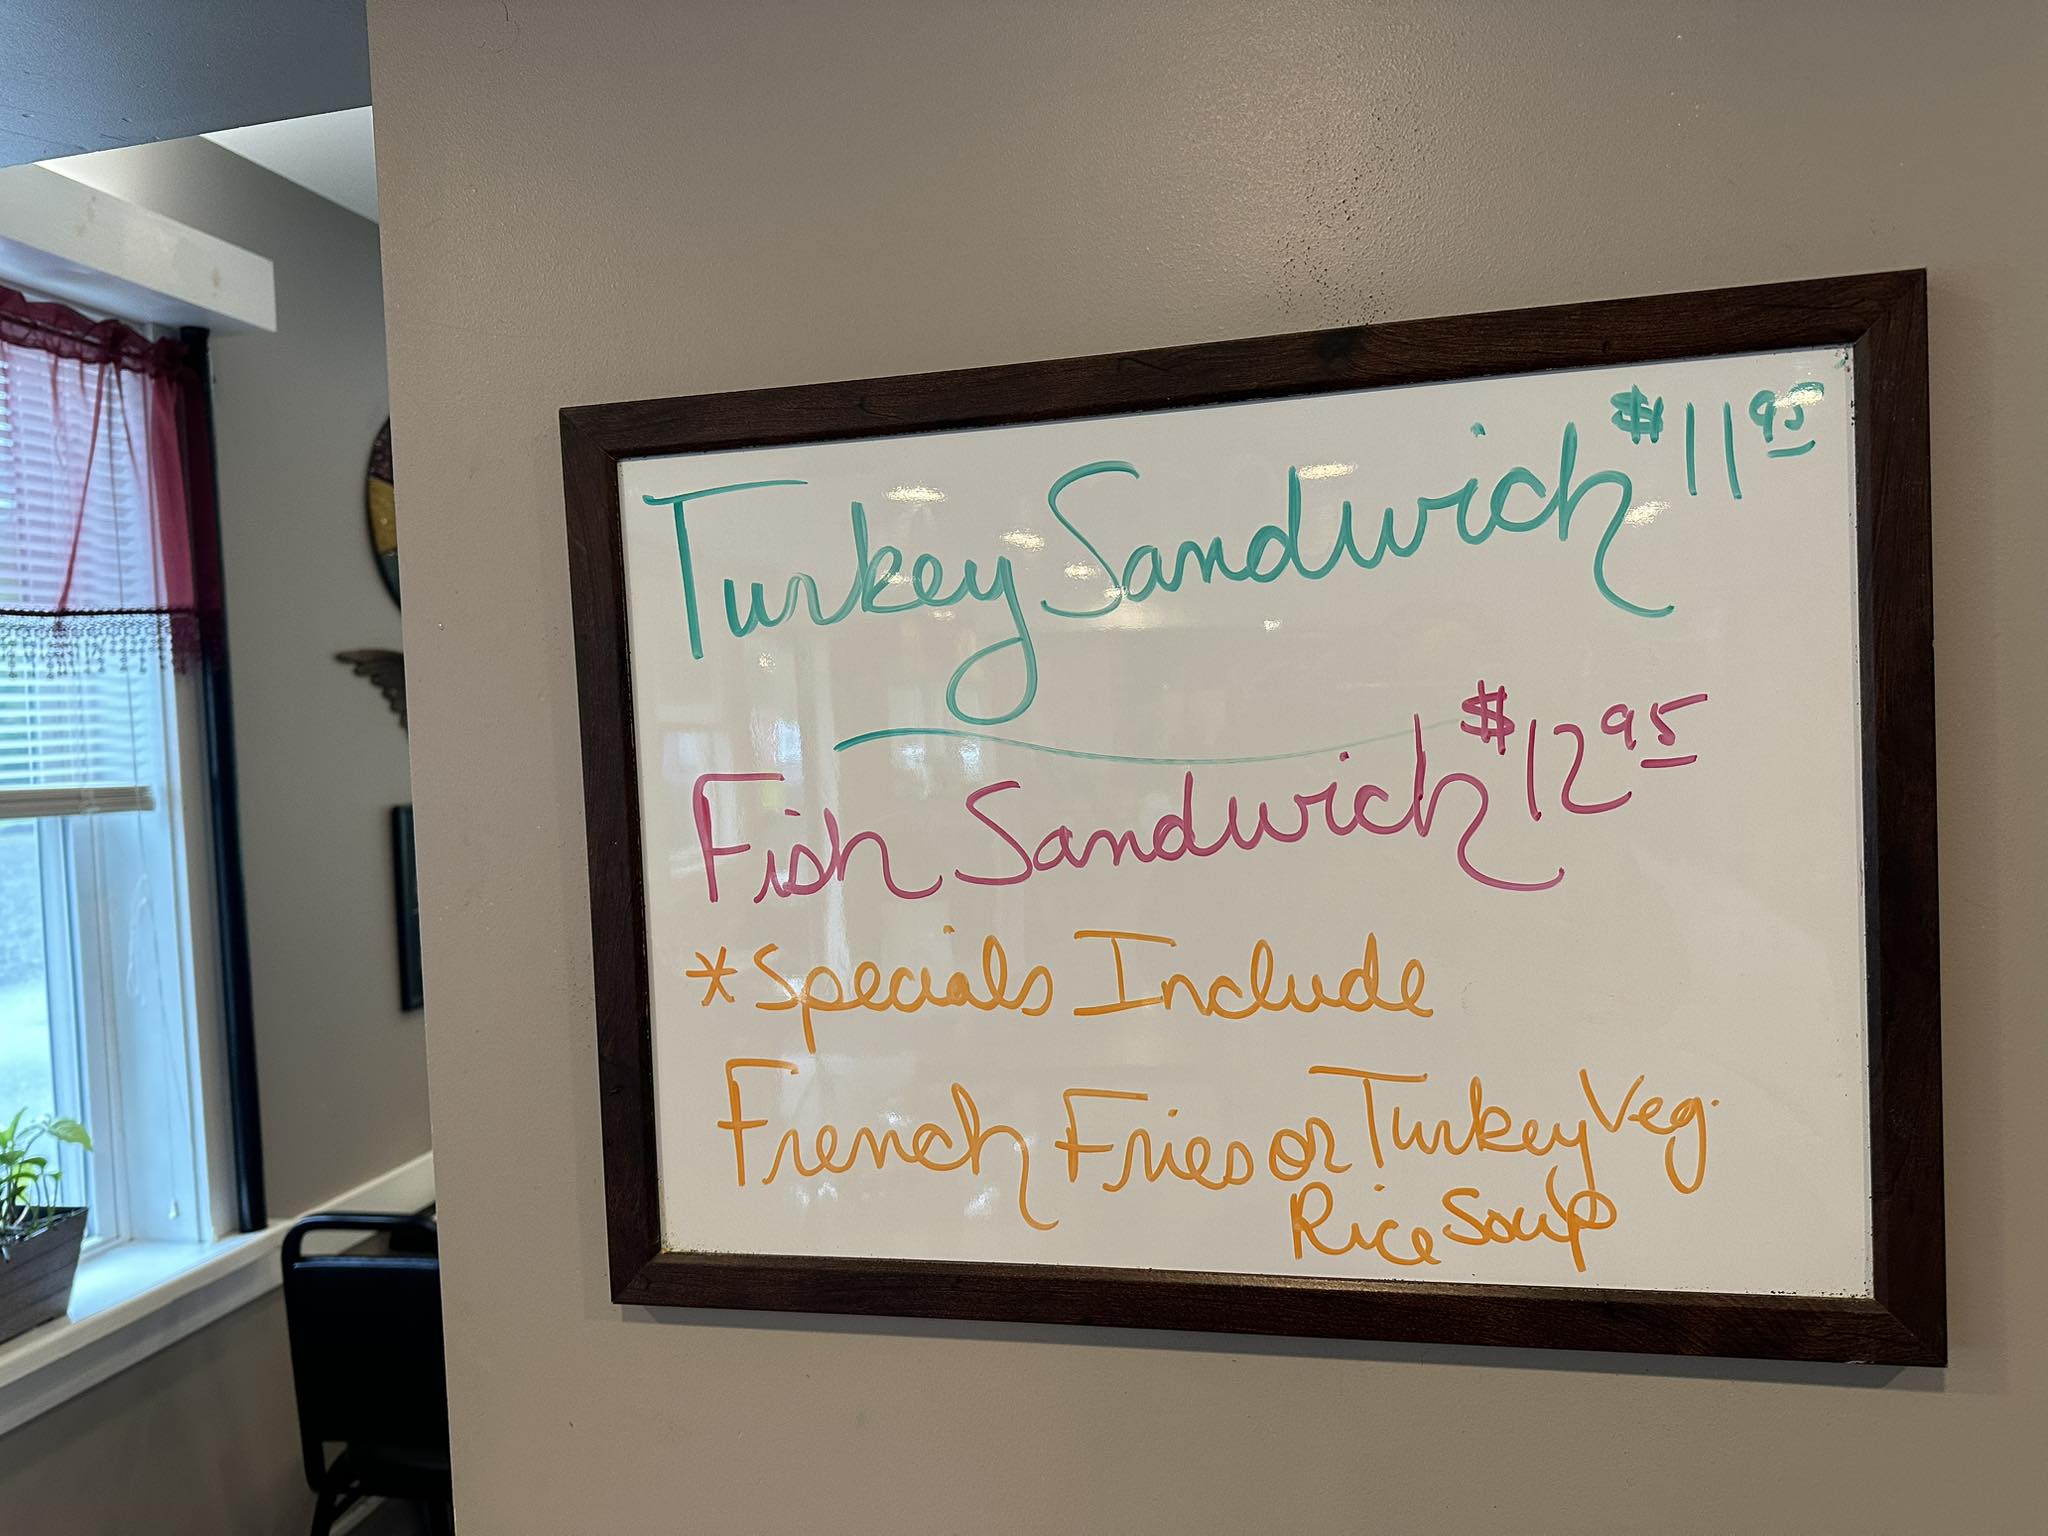 Turkey Sandwich $11 95
Fish Sandwich $12 95
*Specials Include
French Fries or Turkey Veg.
Rice Soup